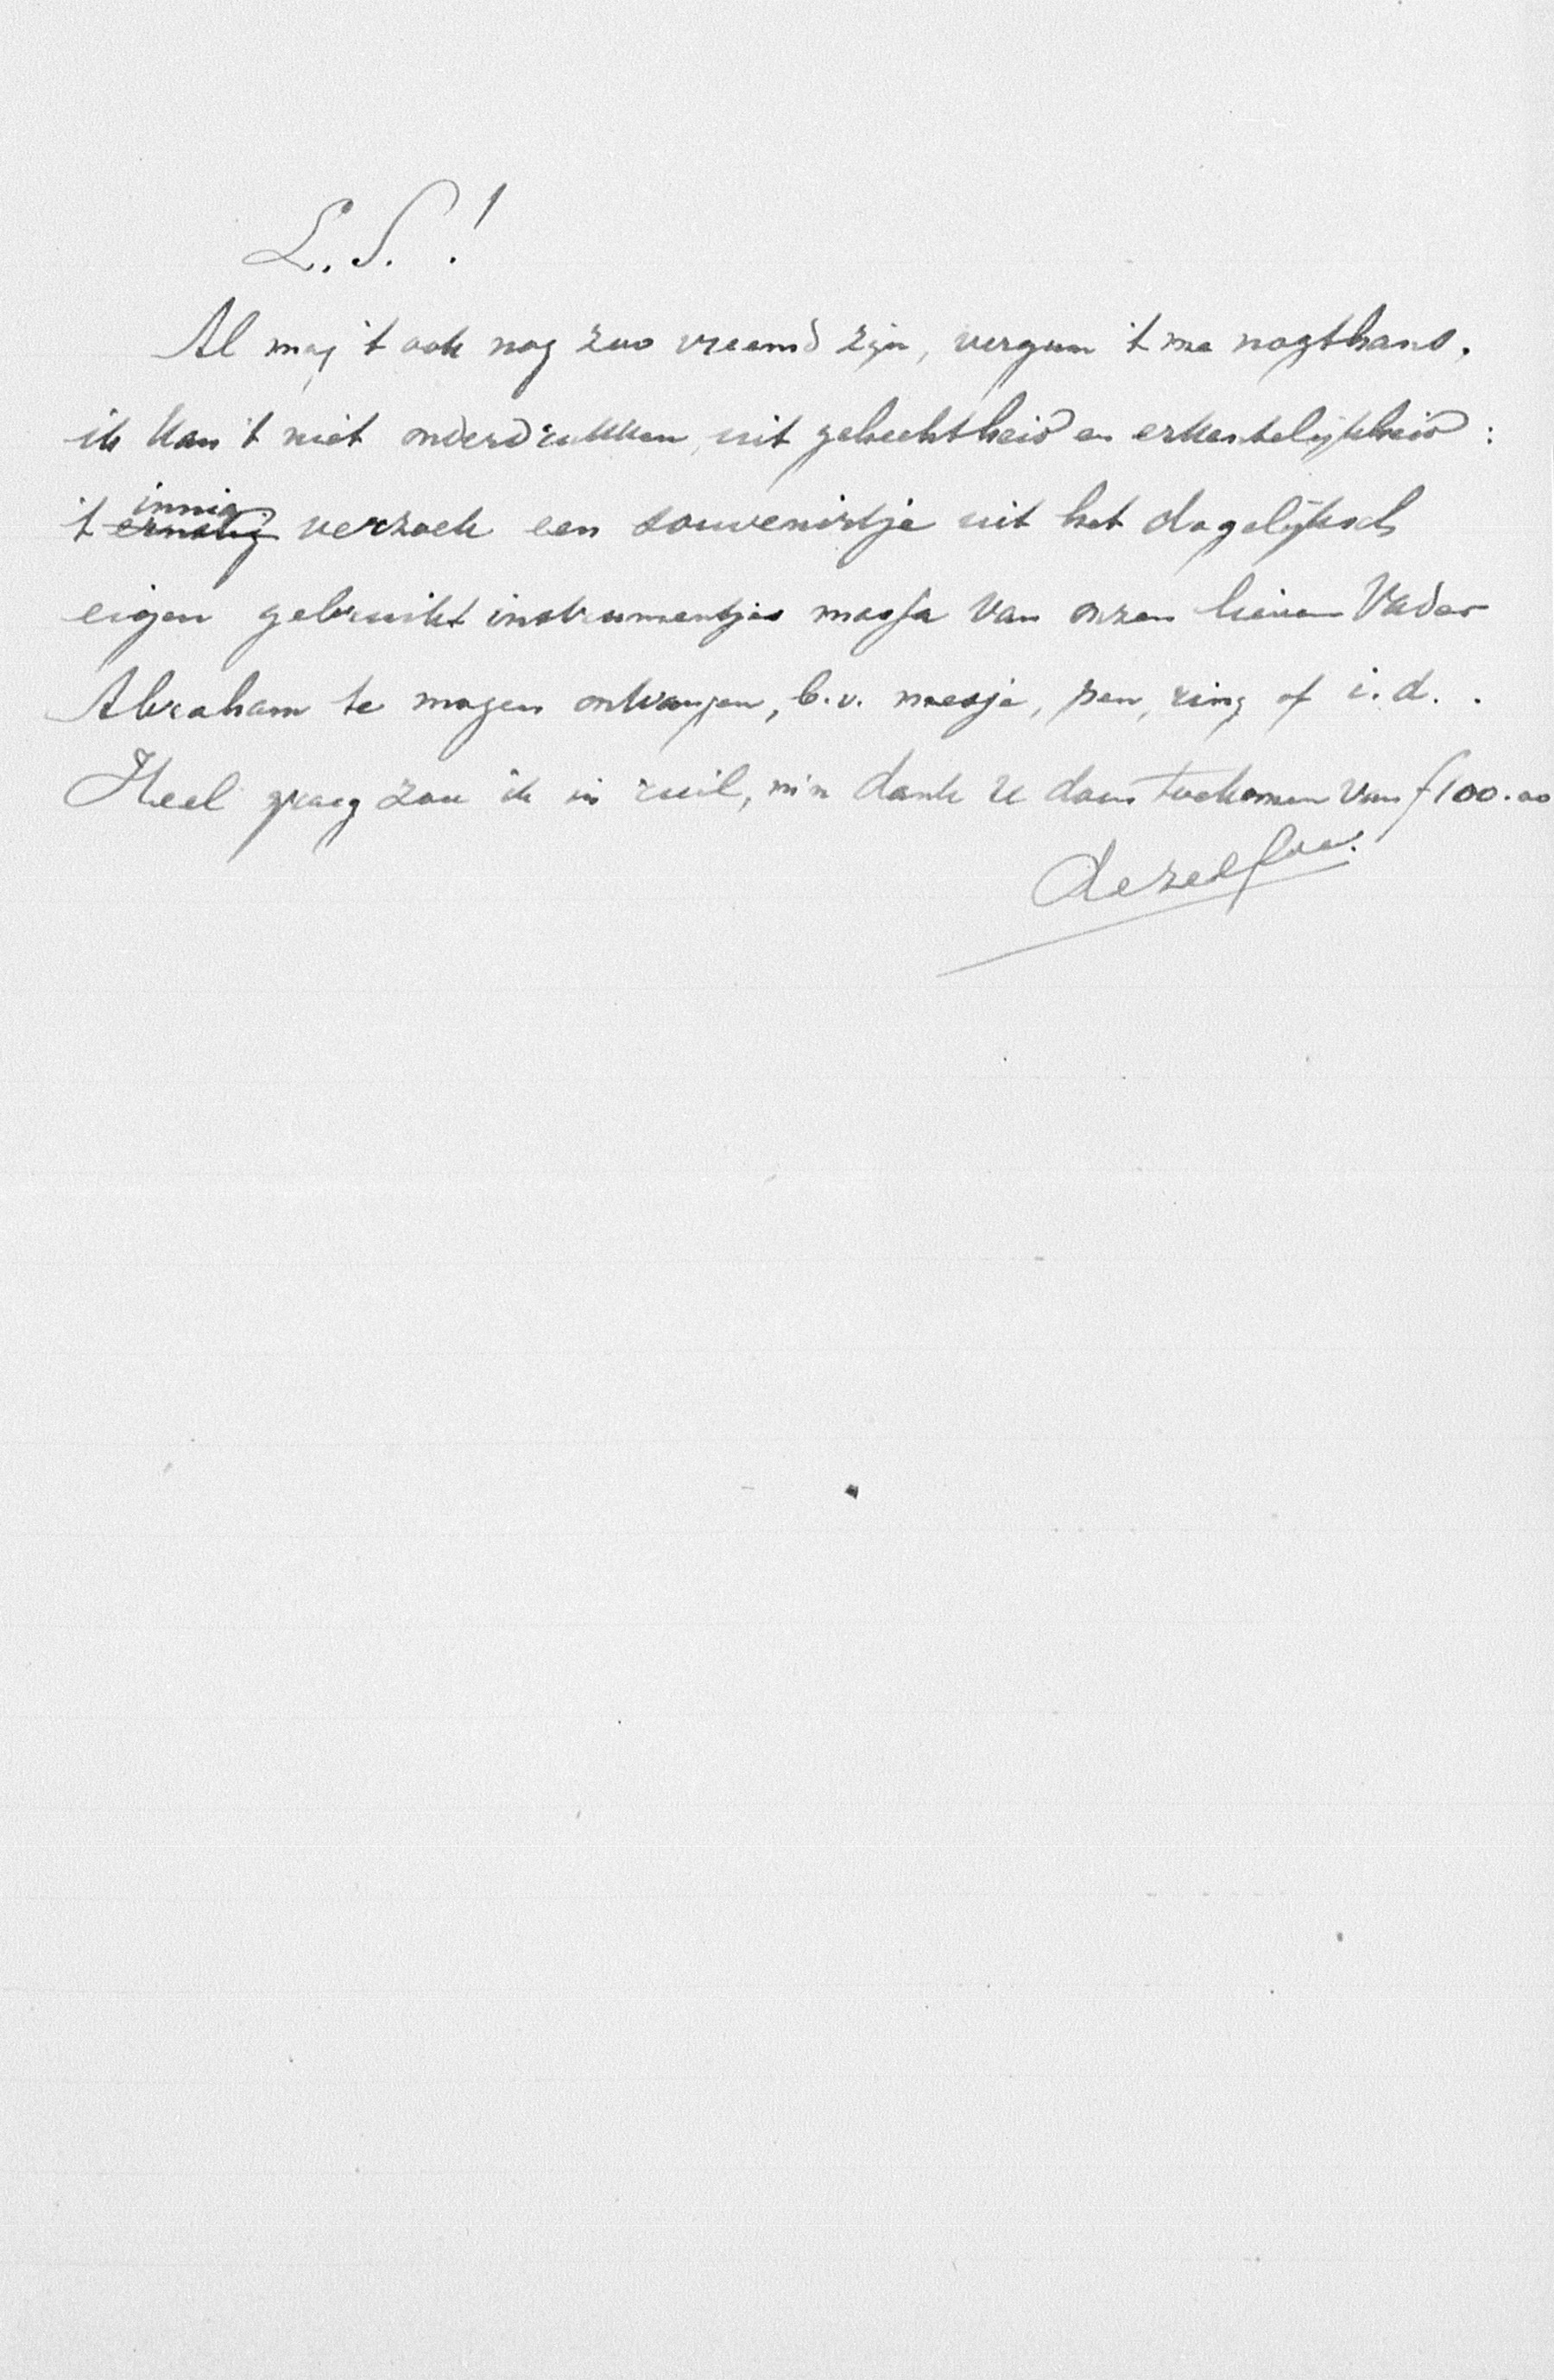 L.S.!
Al mag 't ook nog zoo vreemd zijn, vergun 't me nogthans.
ik kan 't niet onderdrukken, uit gehechtheid en erkentelijkheid:
't innig ernstig verzoek een souvenirtje uit het dagelijksch
eigen gebruikt instrumentjes massa van onzen lieven Vader
Abraham te mogen ontvangen, b.v. mesje, pen, ring of i.d..
Heel graag zou ik in ruil, m'n dank U doen toekomen van f100.00
dezelfde.